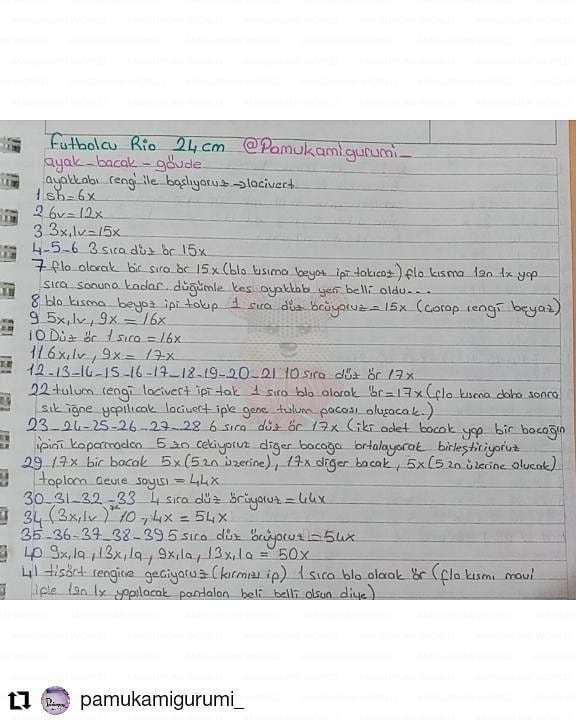 Futbolcu Rio 24 cm @Pamukamigurumi_
ayak-bacak-gövde
ayakkabı rengi ile başlıyoruz→lacivert
1 sh=6x
2 6v=12x
3 3x,1v=15x
4-5-6 3 sıra düz ör 15x
7 flo olarak bir sıra ör 15x (blo kısıma beyaz ipi takıcaz) flo kısma 1zn 1x yap
sıra sonuna kadar düğümle kes ayakkabı yeri belli oldu...
8 blo kısma beyaz ipi takıp 1 sıra düz örüyoruz=15x (çorap rengi beyaz)
9 5x,1v,9x=16x
10 Düz ör 1 sıra=16x
11 6x,1v,9x=17x
12-13-14-15-16-17-18-19-20-21 10 sıra düz ör 17x
22 tulum rengi lacivert ipi tak 1 sıra blo olarak ör=17x (flo kısma daha sonra
sık iğne yapılıcak lacivert iple gene tulum paçası oluşacak.)
23-24-25-26-27-28 6 sıra düz ör 17x (iki adet bacak yap bir bacağın
ipini koparmadan 5 zn çekiyoruz diğer bacağa ortalayarak birleştiriyoruz
29 17x bir bacak 5x (5 zn üzerine), 17x diğer bacak, 5x (5 zn üzerine olucak)
toplam çevre sayısı=44x
30-31-32-33 4 sıra düz örüyoruz=44x
34 (3x,1v)*10, 4x=54x
35-36-37-38-39 5 sıra düz örüyoruz=54x
40 9x,1a,13x,1a,9x,1a,13x,1a=50x
41 tişört rengine geçiyoruz (kırmızı ip) 1 sıra blo olarak ör (flo kısmı mavi
iple 1zn 1x yapılacak pantalon beli belli olsun diye)
pamukamigurumi_